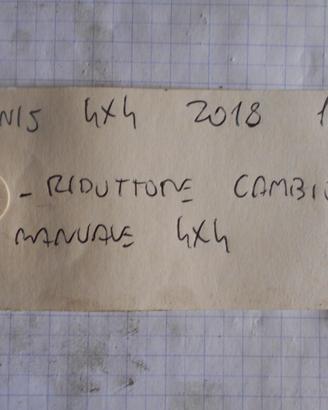 NIS 4X4 2018 1
- RIDUTTORE CAMBIO
MANUALE 4X4